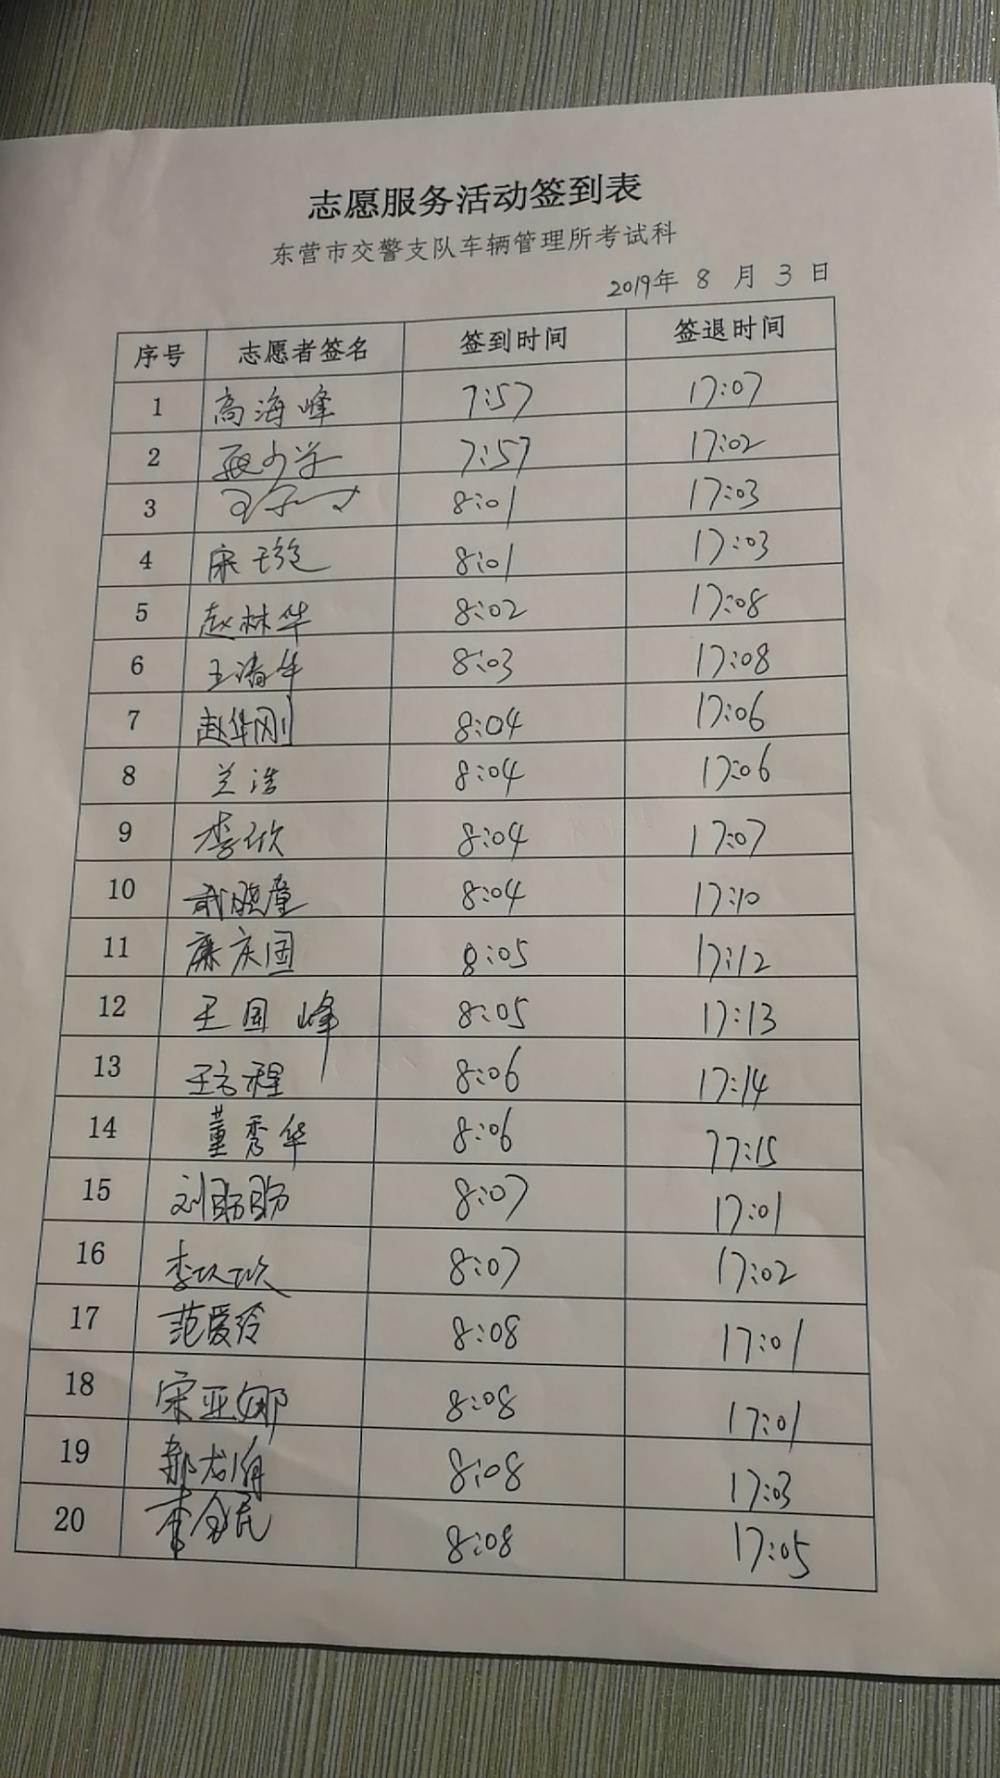 志愿服务活动签到表
东营市交警支队车辆管理所考试科
2019年 8 月 3 日
序号 志愿者签名 签到时间 签退时间
1 高海峰 7:57 17:07
2 7:57 17:02
3 8:01 17:03
4 8:01 17:03
5 赵林华 8:02 17:08
6 王清华 8:03 17:08
7 赵华刚 8:04 17:06
8 兰浩 8:04 17:06
9 李欣 8:04 17:07
10 武晓童 8:04 17:10
11 廉庆国 8:05 17:12
12 王国峰 8:05 17:13
13 8:06 17:14
14 董秀华 8:06 77:15
15 刘盼盼 8:07 17:01
16 8:07 17:02
17 范爱玲 8:08 17:01
18 宋亚娜 8:08 17:01
19 8:08 17:03
20 8:08 17:05